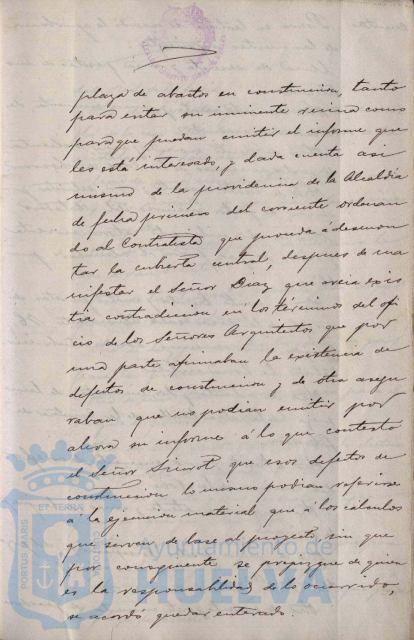 plaza de abastos en construccion, tanto
para evitar su inminente ruina como
para que puedan emitir el informe que
les está interesado, y dada cuenta asi
mismo de la providencia de la Alcaldía
de fecha primero del corriente ordenan
do al Contratista que proceda á desmon
tar la cubierta central, despues de ma
nifestar el Señor Diaz que creia exis
tia contradiccion en los términos del ofi
cio de los Señores Arquitectos que por
una parte afirmaban la existencia de
defectos de construccion y de otra asegu
raban que no podian emitir por
ahora su informe á lo que contestó
el Señor que esos defectos de
construccion lo mismo podian referirse
á la ejecucion material que á los cálculos
que sirven de base al proyecto, sin que
por consiguiente se prejuzgue de quien
es la responsabilidad de lo ocurrido,
se acordó quedar enterado.
PORTUS MARIS
ET TERRÆ
Ayuntamiento de
HUELVA